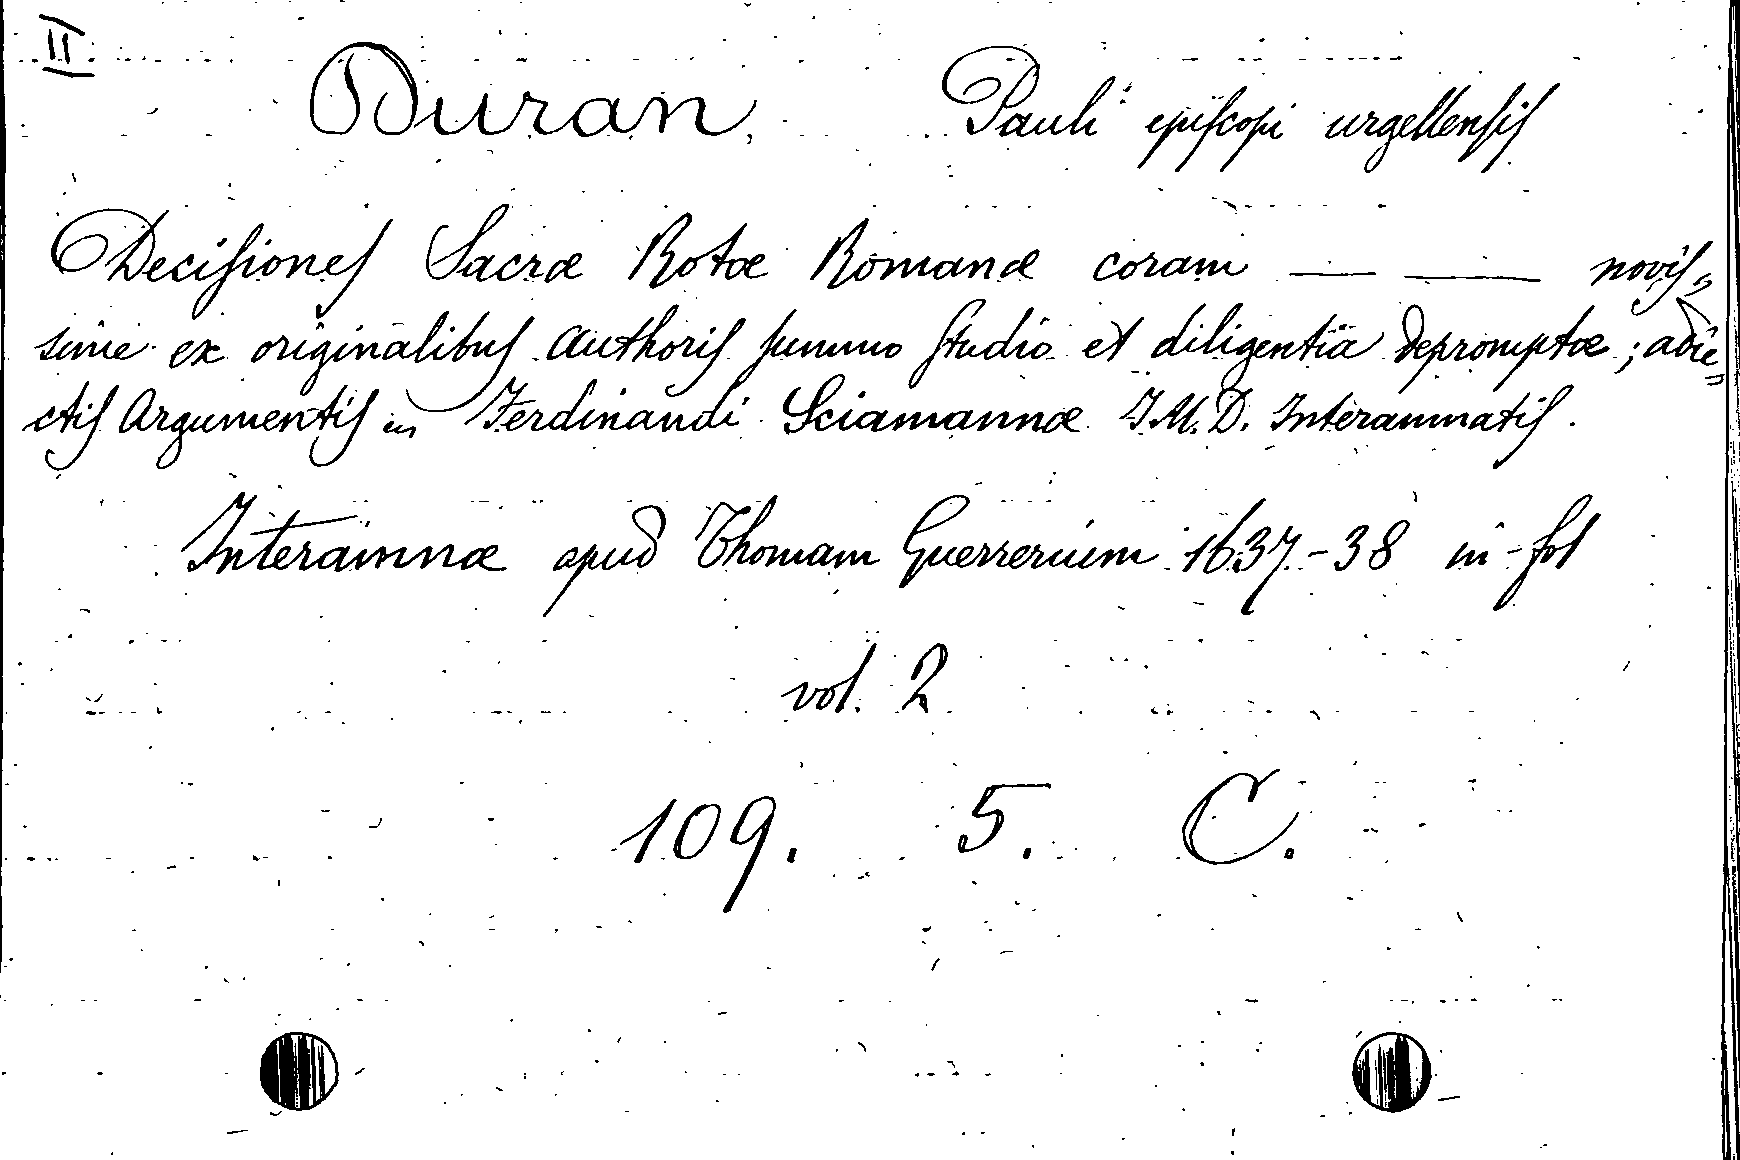 II
Duran, Pauli episcopi urgellensis
Decisiones Sacræ Rotæ Romanæ coram — — novis⸗
sime ex originalibus authoris summo studio et diligentia depromptæ ; adie„
ctis Argumentis Ferdinandi Sciamannæ I.U.D. Interamnatis .
Interamnæ apud Thomam Guerrerium 1637-38 in-fol
vol. 2
109. 5. C.